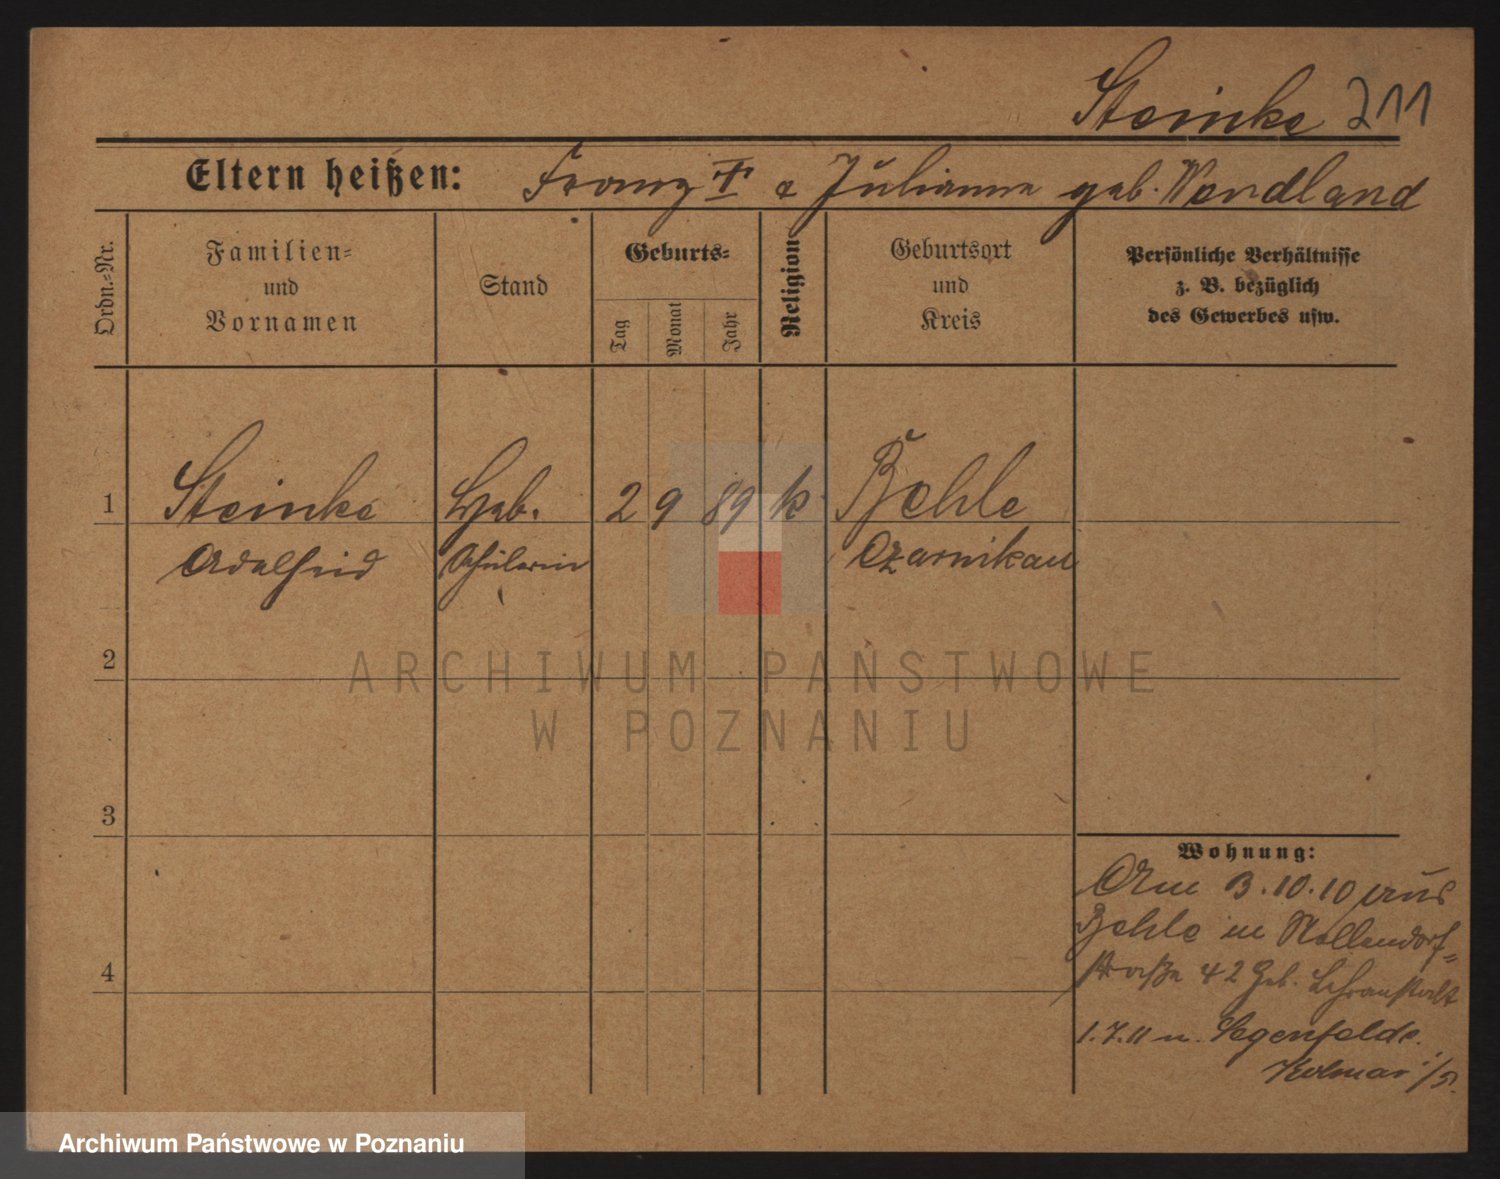 Steinke 211
Eltern heißen: Franz † & Julianna geb. Wendland
Ordn.-Nr.
Familien-
und
Vornamen
Stand
Geburts-
Tag
Monat
Jahr
Religion
Geburtsort
und
Kreis
Persönliche Verhältnisse
z. B. bezüglich
des Gewerbes usw.
1
Steinke
Heb.
2 9 89 k
Behle
Adelheid
Schülerin
Czarnikau
2
3
4
Wohnung:
Am 3.10.10 aus
Behle in Nollendorf-
straße 42 Heb. Lehranstalt
1.7.11 n. Segenfelde.
Kolmar i/P.
ARCHIWUM PAŃSTWOWE
W POZNANIU
Archiwum Państwowe w Poznaniu